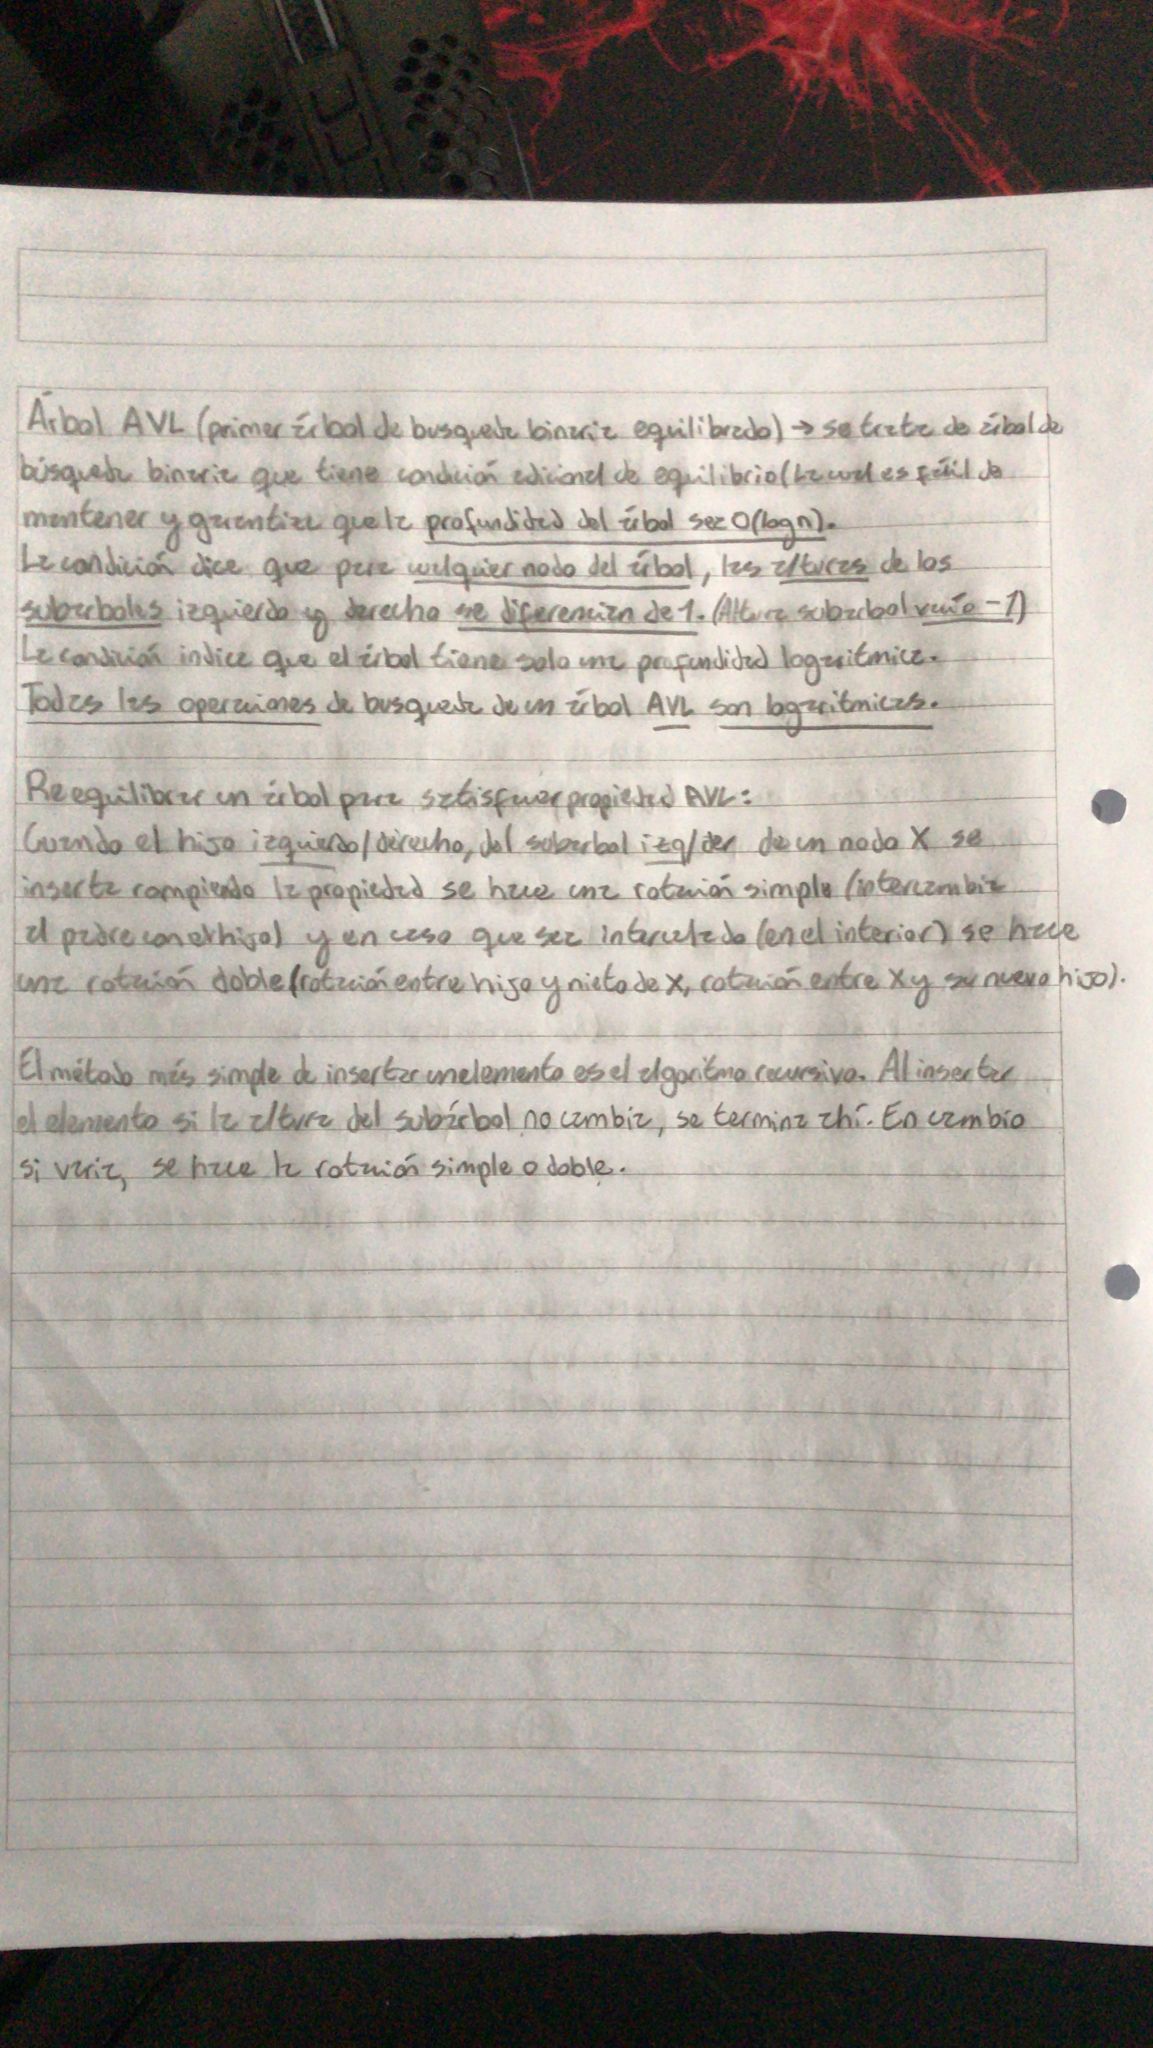 Árbol AVL (primer árbol de busqueda binaria equilibrado) → se trata de árbol de
búsqueda binaria que tiene condición adicional de equilibrio (La cual es fácil de
mantener y garantiza que la profundidad del árbol sea O(log n).
La condición dice que para cualquier nodo del árbol, las alturas de los
subarboles izquierdo y derecho se diferencien de 1. (Altura subarbol vacío -1)
La condición indica que el árbol tiene solo una profundidad logaritmica.
Todas las operaciones de busqueda de un árbol AVL son logaritmicas.
Reequilibrar un árbol para satisfacer propiedad AVL:
Cuando el hijo izquierdo/derecho, del subarbol izq/der de un nodo X se
inserta rompiendo la propiedad se hace una rotación simple (intercambia
el padre con el hijo) y en caso que sea intercalado (en el interior) se hace
una rotación doble (rotación entre hijo y nieto de X, rotación entre X y su nuevo hijo).
El método más simple de insertar un elemento es el algoritmo recursivo. Al insertar
el elemento si la altura del subárbol no cambia, se termina ahí. En cambio
si varia, se hace la rotación simple o doble.